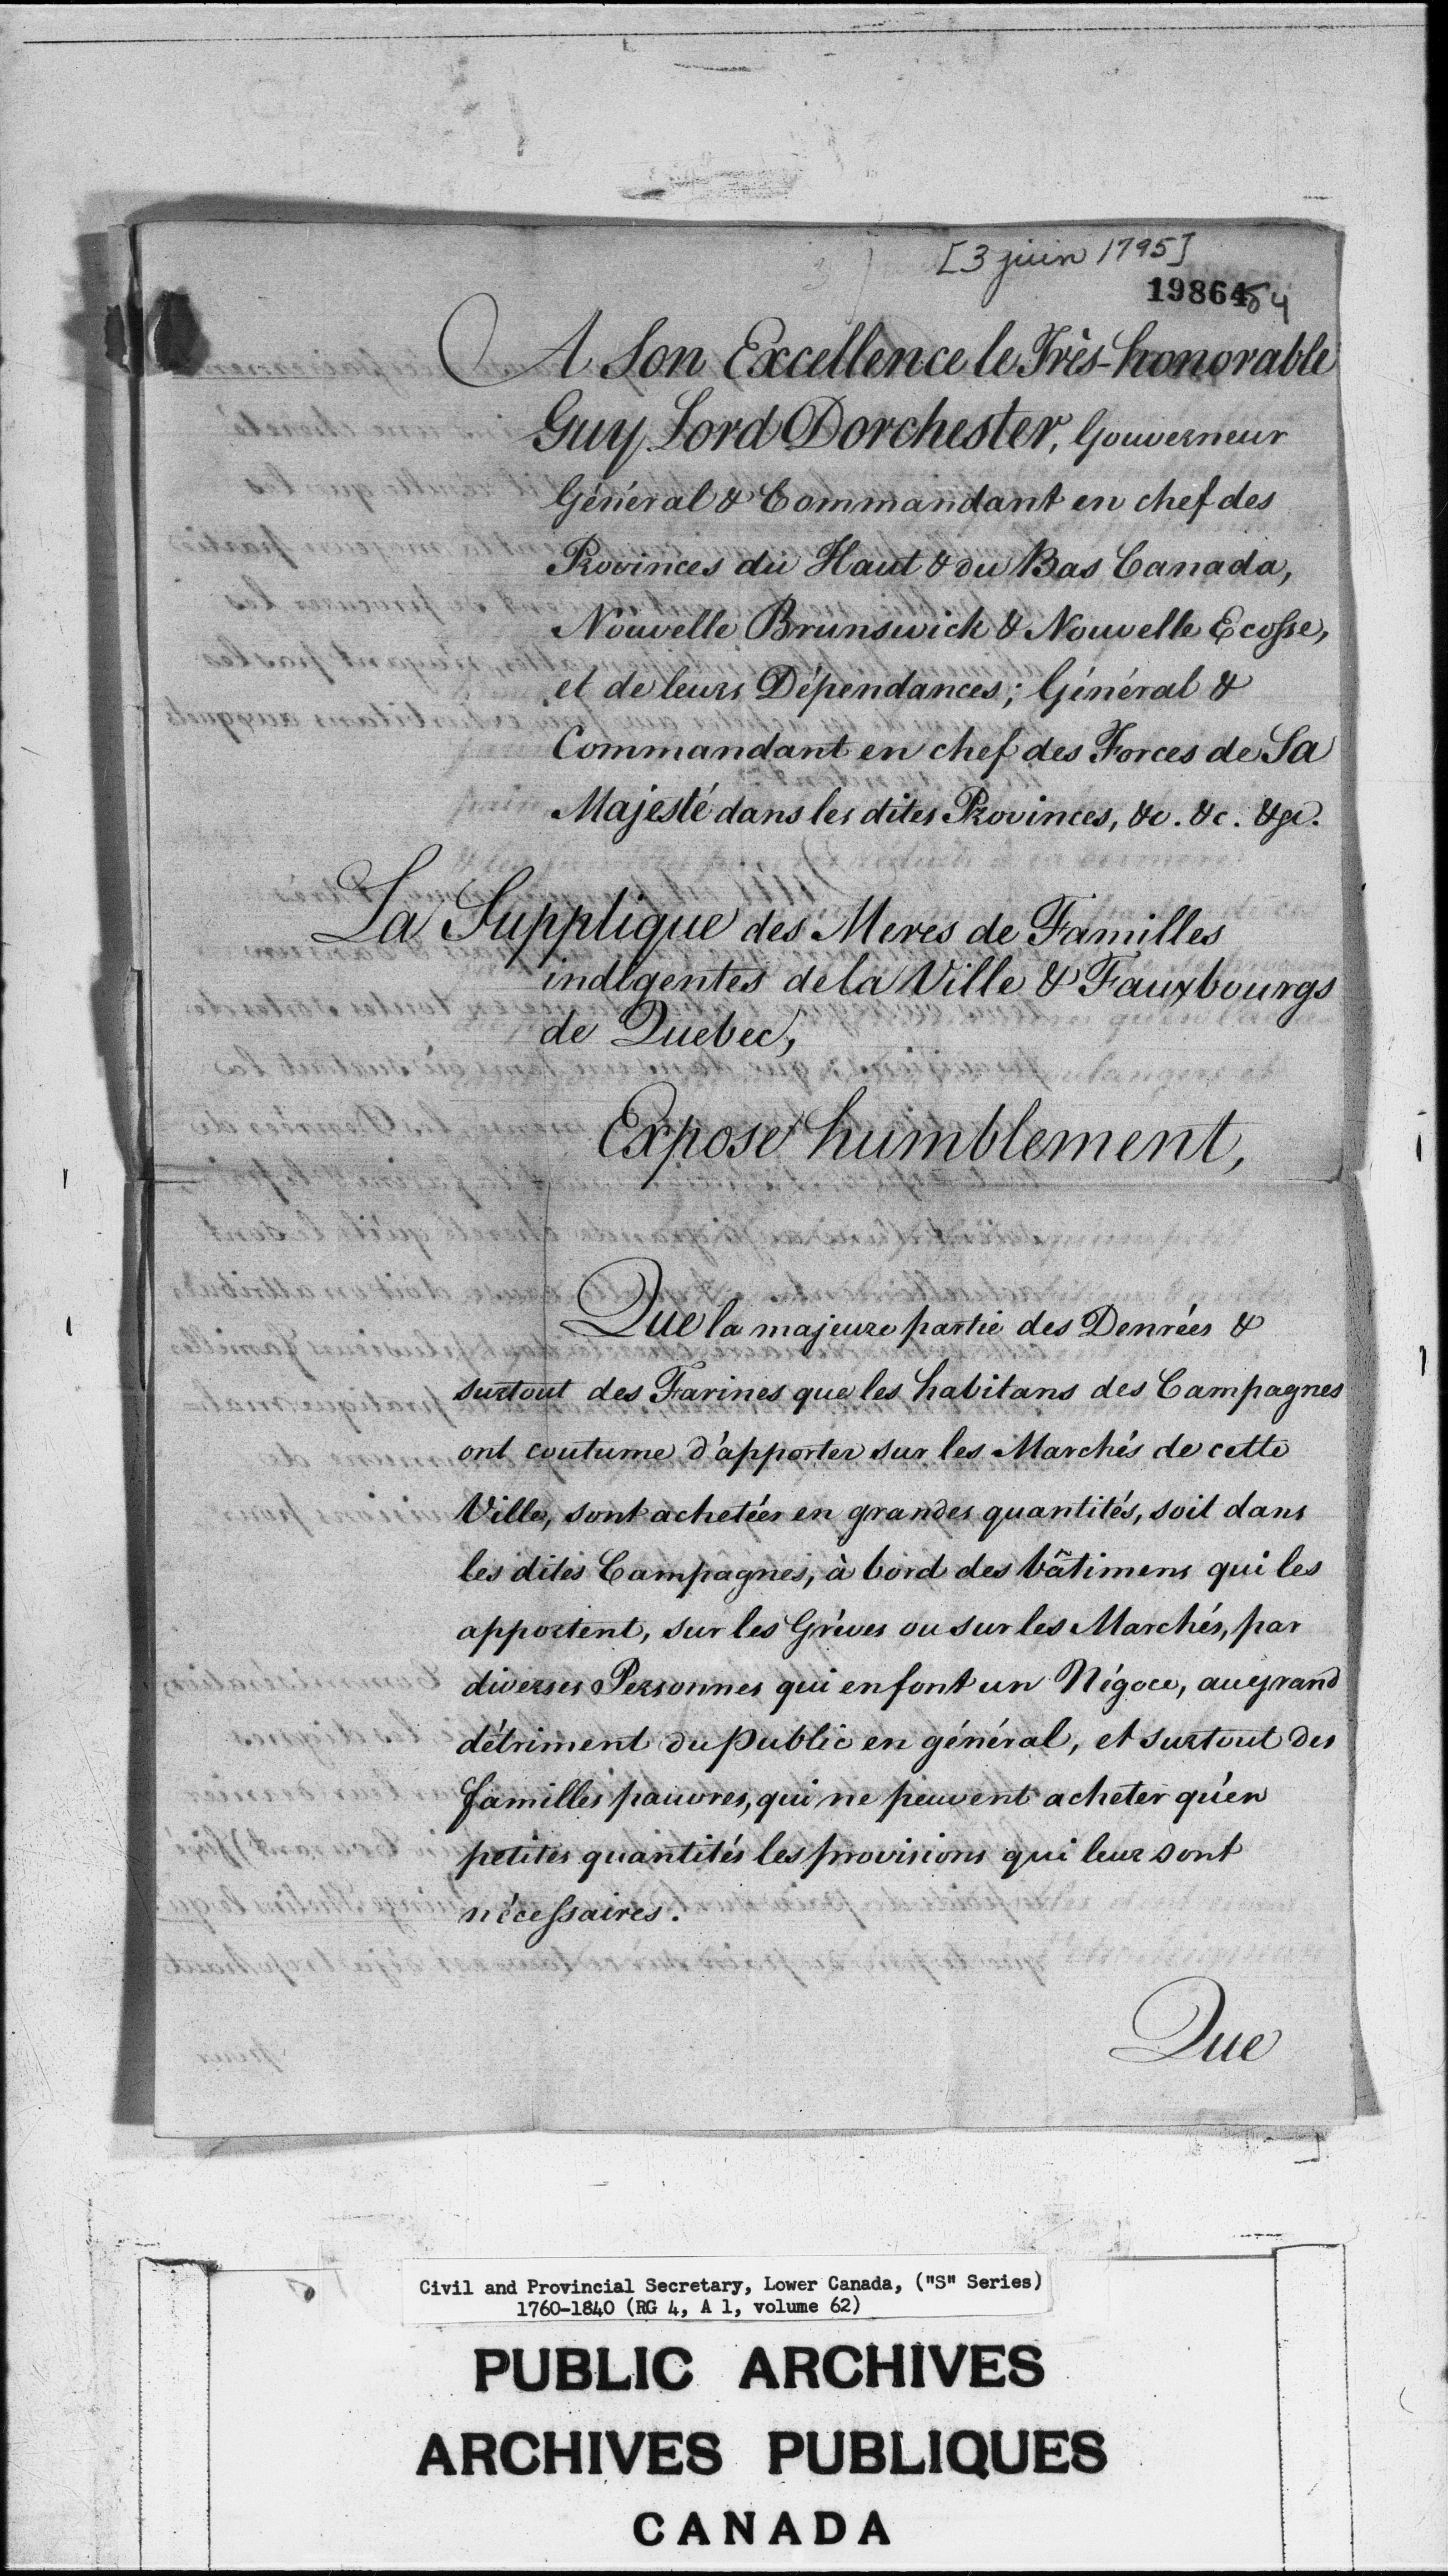 [3 juin 1795]
19864
A Son Excellence le Très-honorable
Guy Lord Dorchester, Gouverneur
Général & Commandant en chef des
Provinces du Haut & du Bas Canada,
Nouvelle Brunswick & Nouvelle Ecosse,
et de leurs Dépendances; Général &
Commandant en chef des Forces de Sa
Majesté dans les dites Provinces, &c. &c. &c.
La Supplique des Meres de Familles
indigentes de la Ville & Fauxbourgs
de Quebec,
Expose humblement,
Que la majeure partie des Denrées &
surtout des Farines que les habitans des Campagnes
ont coutume d'apporter sur les Marchés de cette
Ville, sont achetées en grandes quantités, soit dans
les dites Campagnes, à bord des bâtimens qui les
apportent, sur les Grèves ou sur les Marchés, par
diverses Personnes qui en font un Négoce, au grand
détriment du Public en général, et surtout des
familles pauvres, qui ne peuvent acheter qu'en
petites quantités les provisions qui leur sont
nécessaires.
Que
Civil and Provincial Secretary, Lower Canada, ("S" Series)
1760-1840 (RG 4, A 1, volume 62)
PUBLIC ARCHIVES
ARCHIVES PUBLIQUES
CANADA